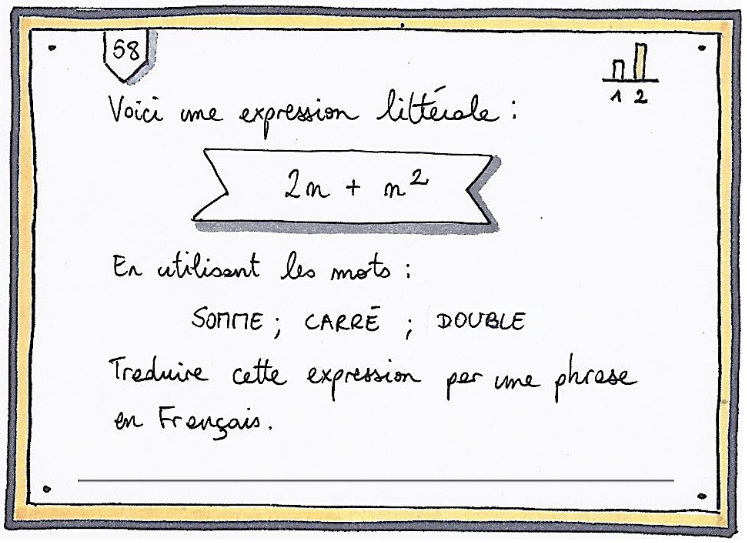 58
1 2
Voici une expression littérale :
2n + n²
En utilisant les mots :
SOMME ; CARRÉ ; DOUBLE
Traduire cette expression par une phrase
en Français.